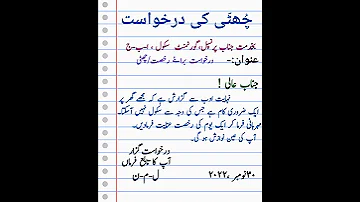 چُھٹی کی درخواست
بخدمت جناب پرنسپل، گورنمنٹ سکول ، ا-ب-ج
عنوان:- درخواست برائے رخصت/چھٹی
جناب عالی !
نہایت ادب سے گزارش ہے کہ مجھے گھر پر
ایک ضروری کام ہے جس کی وجہ سے سکول نہیں آسکتا۔
مہربانی فرما کر ایک یوم کی رخصت عنایت فرمادیں۔
آپ کی عین نوازش ہو گی۔
درخواست گزار
آپ کا تابع فرماں
ل-م-ن
۳۰نومبر ،۲۰۲۲